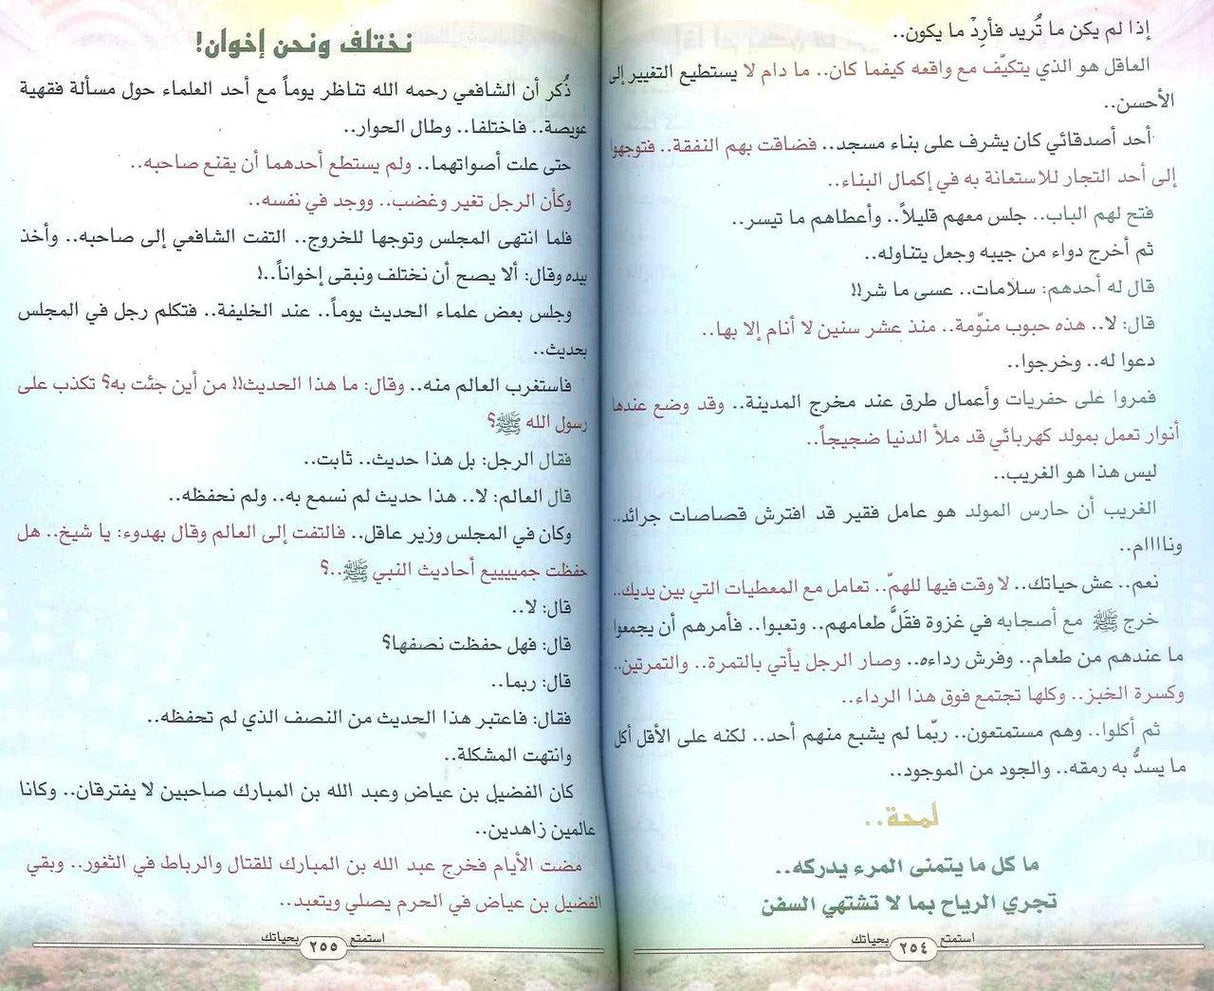 إذا لم يكن ما تُريد فأرِدْ ما يكون..
العاقل هو الذي يتكيّف مع واقعه كيفما كان.. ما دام لا يستطيع التغيير إلى
الأحسن..
أحد أصدقائي كان يشرف على بناء مسجد.. فضاقت بهم النفقة.. فتوجهوا
إلى أحد التجار للاستعانة به في إكمال البناء..
فتح لهم الباب.. جلس معهم قليلاً.. وأعطاهم ما تيسر..
ثم أخرج دواء من جيبه وجعل يتناوله..
قال له أحدهم: سلامات.. عسى ما شر!!
قال: لا.. هذه حبوب منوّمة.. منذ عشر سنين لا أنام إلا بها..
دعوا له.. وخرجوا..
فمروا على حفريات وأعمال طرق عند مخرج المدينة.. وقد وضع عندها
أنوار تعمل بمولد كهربائي قد ملأ الدنيا ضجيجاً..
ليس هذا هو الغريب..
الغريب أن حارس المولد هو عامل فقير قد افترش قصاصات جرائد..
وناااام..
نعم.. عش حياتك.. لا وقت فيها للهمّ.. تعامل مع المعطيات التي بين يديك..
خرج ﷺ مع أصحابه في غزوة فقَلَّ طعامهم.. وتعبوا.. فأمرهم أن يجمعوا
ما عندهم من طعام.. وفرش رداءه.. وصار الرجل يأتي بالتمرة.. والتمرتين..
وكسرة الخبز.. وكلها تجتمع فوق هذا الرداء..
ثم أكلوا.. وهم مستمتعون.. ربّما لم يشبع منهم أحد.. لكنه على الأقل أكل
ما يسدُّ به رمقه.. والجود من الموجود..
لمحة..
ما كل ما يتمنى المرء يدركه..
تجري الرياح بما لا تشتهي السفن
استمتع ٢٥٤ بحياتك
نختلف ونحن إخوان!
ذُكر أن الشافعي رحمه الله تناظر يوماً مع أحد العلماء حول مسألة فقهية
عويصة.. فاختلفا.. وطال الحوار..
حتى علت أصواتهما.. ولم يستطع أحدهما أن يقنع صاحبه..
وكأن الرجل تغير وغضب.. ووجد في نفسه..
فلما انتهى المجلس وتوجها للخروج.. التفت الشافعي إلى صاحبه.. وأخذ
بيده وقال: ألا يصح أن نختلف ونبقى إخواناً..!
وجلس بعض علماء الحديث يوماً.. عند الخليفة.. فتكلم رجل في المجلس
بحديث..
فاستغرب العالم منه.. وقال: ما هذا الحديث!! من أين جئت به؟ تكذب على
رسول الله ﷺ؟
فقال الرجل: بل هذا حديث.. ثابت..
قال العالم: لا.. هذا حديث لم نسمع به.. ولم نحفظه..
وكان في المجلس وزير عاقل.. فالتفت إلى العالم وقال بهدوء: يا شيخ.. هل
حفظت جمييييع أحاديث النبي ﷺ..؟
قال: لا..
قال: فهل حفظت نصفها؟
قال: ربما..
فقال: فاعتبر هذا الحديث من النصف الذي لم تحفظه..
وانتهت المشكلة..
كان الفضيل بن عياض وعبد الله بن المبارك صاحبين لا يفترقان.. وكانا
عالمين زاهدين..
مضت الأيام فخرج عبد الله بن المبارك للقتال والرباط في الثغور.. وبقي
الفضيل بن عياض في الحرم يصلي ويتعبد..
استمتع ٢٥٥ بحياتك